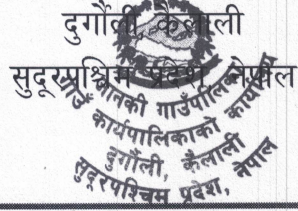 दुगौंली कैलाली
सुदूरपश्चिम प्रदेश नेपाल
जानकी गाउँपालिका
गाउँ कार्यपालिकाको कार्यालय
दुर्गौली, कैलाली
सुदूरपश्चिम प्रदेश, नेपाल